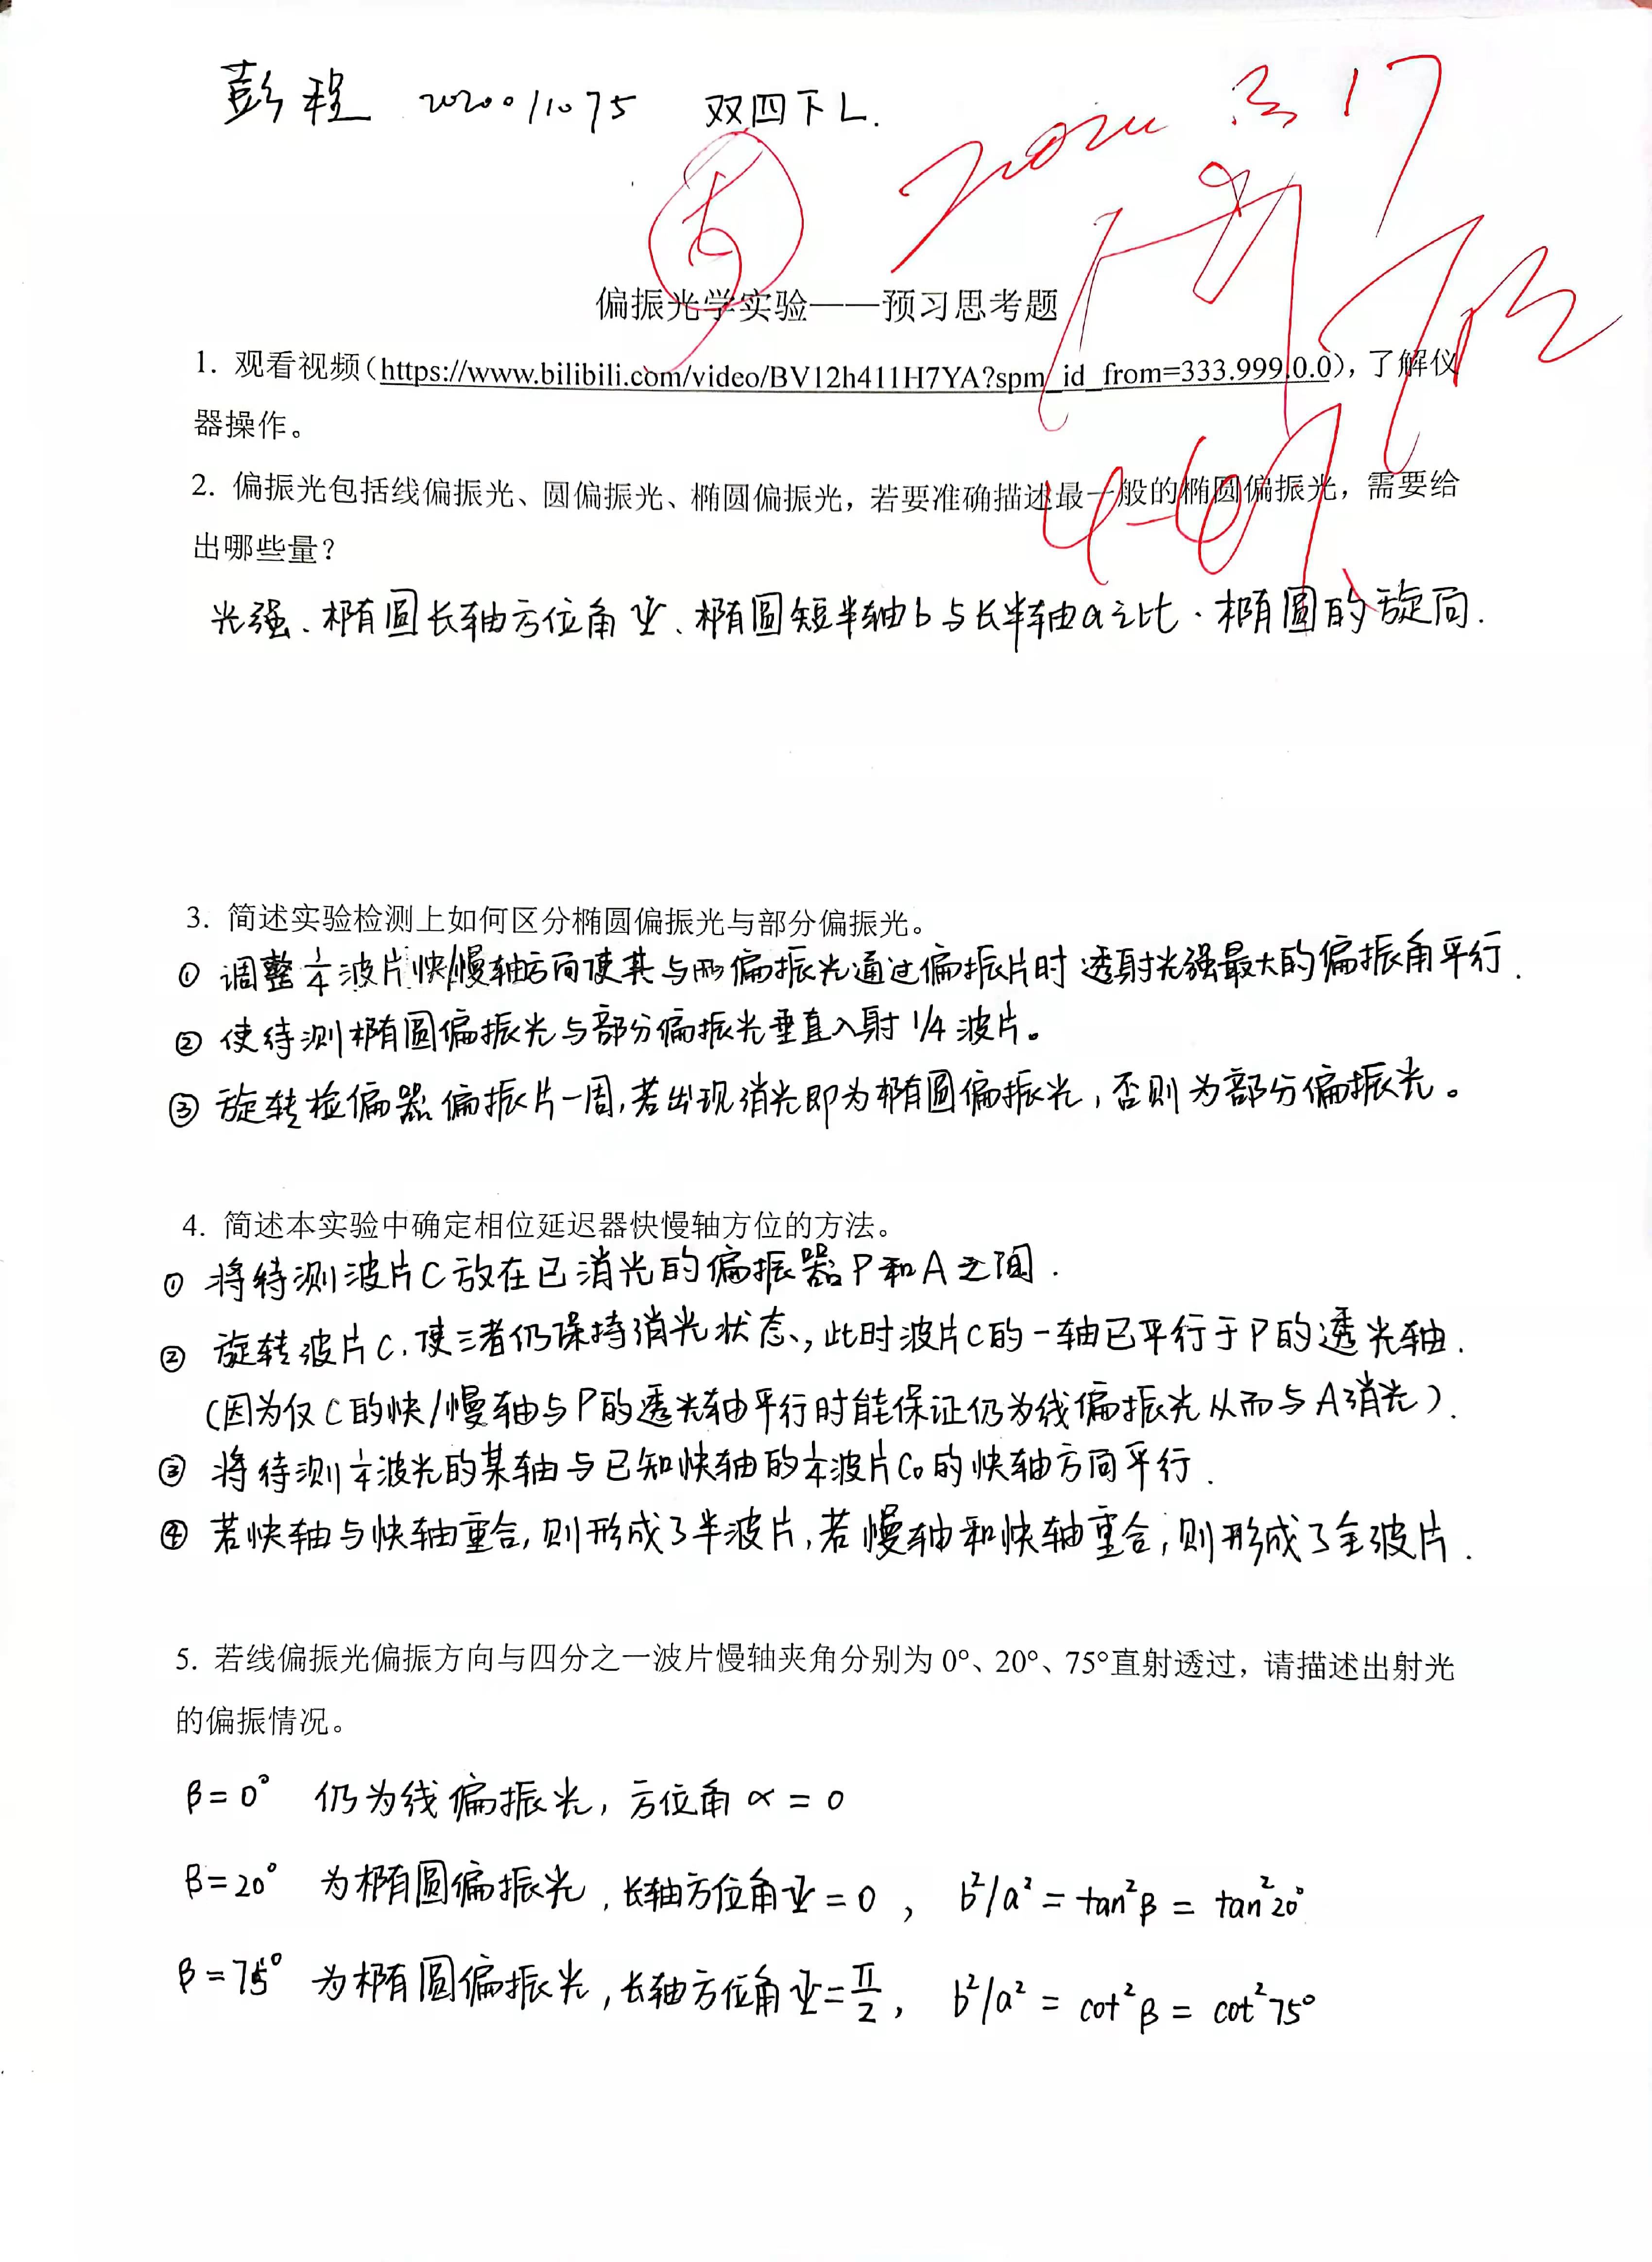 彭程 2020011075 双四下L.
5
偏振光学实验——预习思考题
1. 观看视频(https://www.bilibili.com/video/BV12h411H7YA?spm_id_from=333.999.0.0),了解仪
器操作。
2. 偏振光包括线偏振光、圆偏振光、椭圆偏振光,若要准确描述最一般的椭圆偏振光,需要给
出哪些量?
光强、椭圆长轴方位角Ψ、椭圆短半轴b与长半轴a之比、椭圆的旋向.
3. 简述实验检测上如何区分椭圆偏振光与部分偏振光。
① 调整1/4波片快/慢轴方向使其与两偏振光通过偏振片时透射光强最大的偏振角平行.
② 使待测椭圆偏振光与部分偏振光垂直入射1/4波片。
③ 旋转检偏器偏振片一周,若出现消光即为椭圆偏振光,否则为部分偏振光。
4. 简述本实验中确定相位延迟器快慢轴方位的方法。
① 将待测波片C放在已消光的偏振器P和A之间.
② 旋转波片C,使三者仍保持消光状态,此时波片C的一轴已平行于P的透光轴.
(因为仅C的快/慢轴与P的透光轴平行时能保证仍为线偏振光从而与A消光).
③ 将待测1/4波光的某轴与已知快轴的1/4波片C₀的快轴方向平行.
④ 若快轴与快轴重合,则形成了半波片,若慢轴和快轴重合,则形成了全波片.
5. 若线偏振光偏振方向与四分之一波片慢轴夹角分别为 0°、20°、75°直射透过,请描述出射光
的偏振情况。
β=0° 仍为线偏振光,方位角 α=0
β=20° 为椭圆偏振光,长轴方位角Ψ=0, b²/a²=tan²β=tan²20°
β=75° 为椭圆偏振光,长轴方位角Ψ=π/2, b²/a²=cot²β=cot²75°